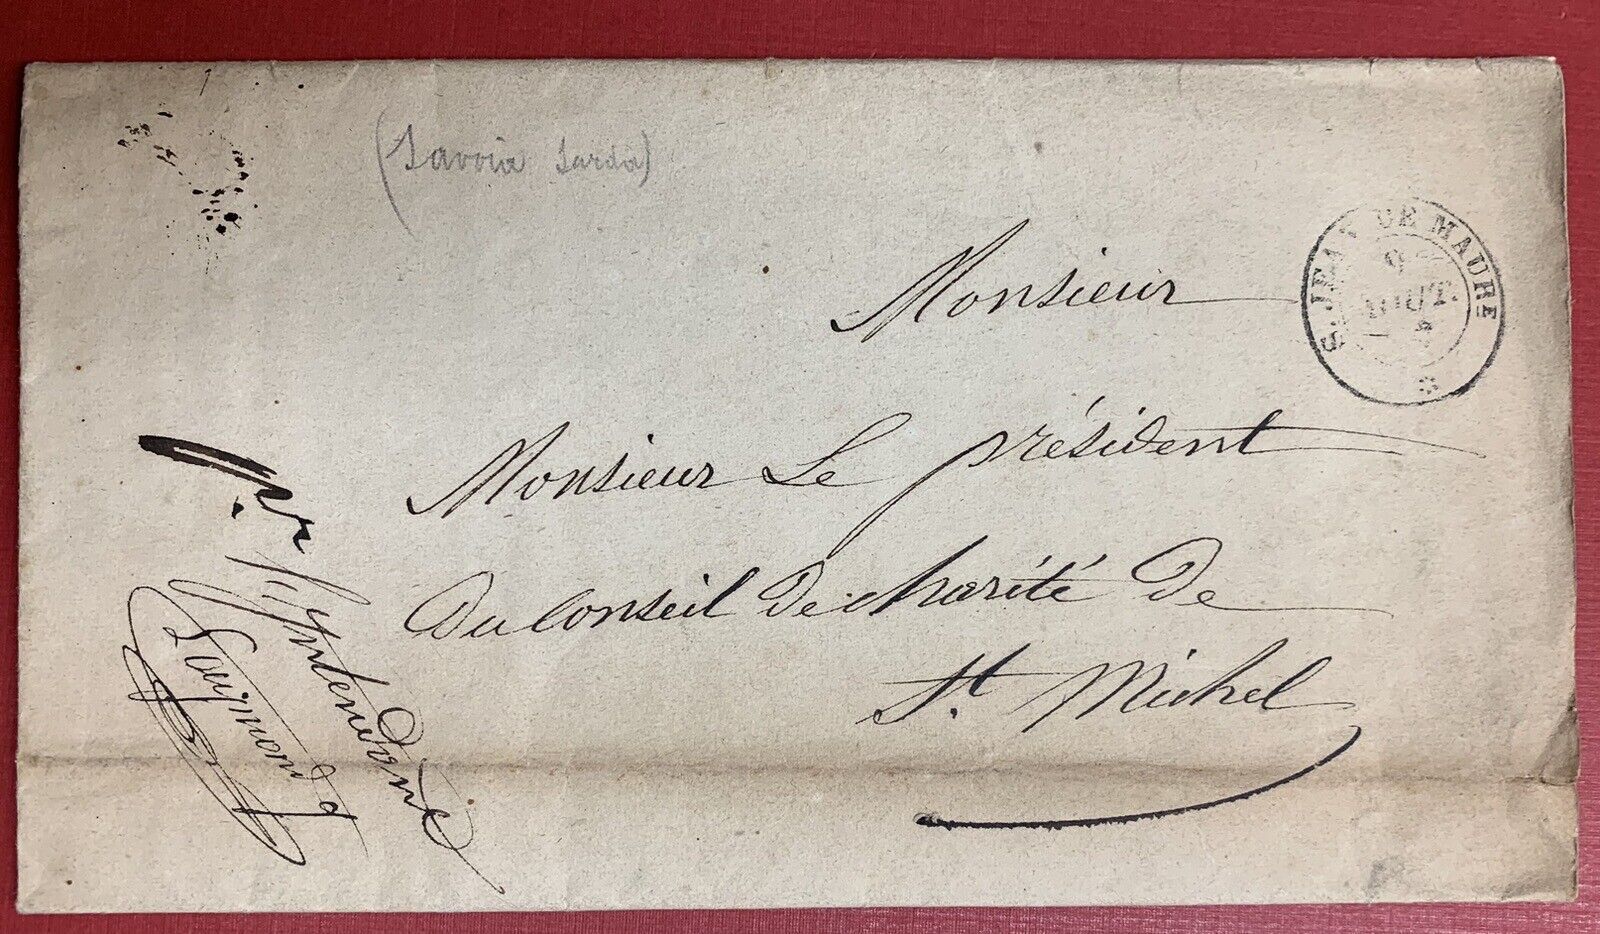 (Savoia Sarda)
S. JEAN DE MAURE
9
AOUT.
Monsieur
Monsieur Le président
Du Conseil De charité De
St. Michel
pr. l'Intendant